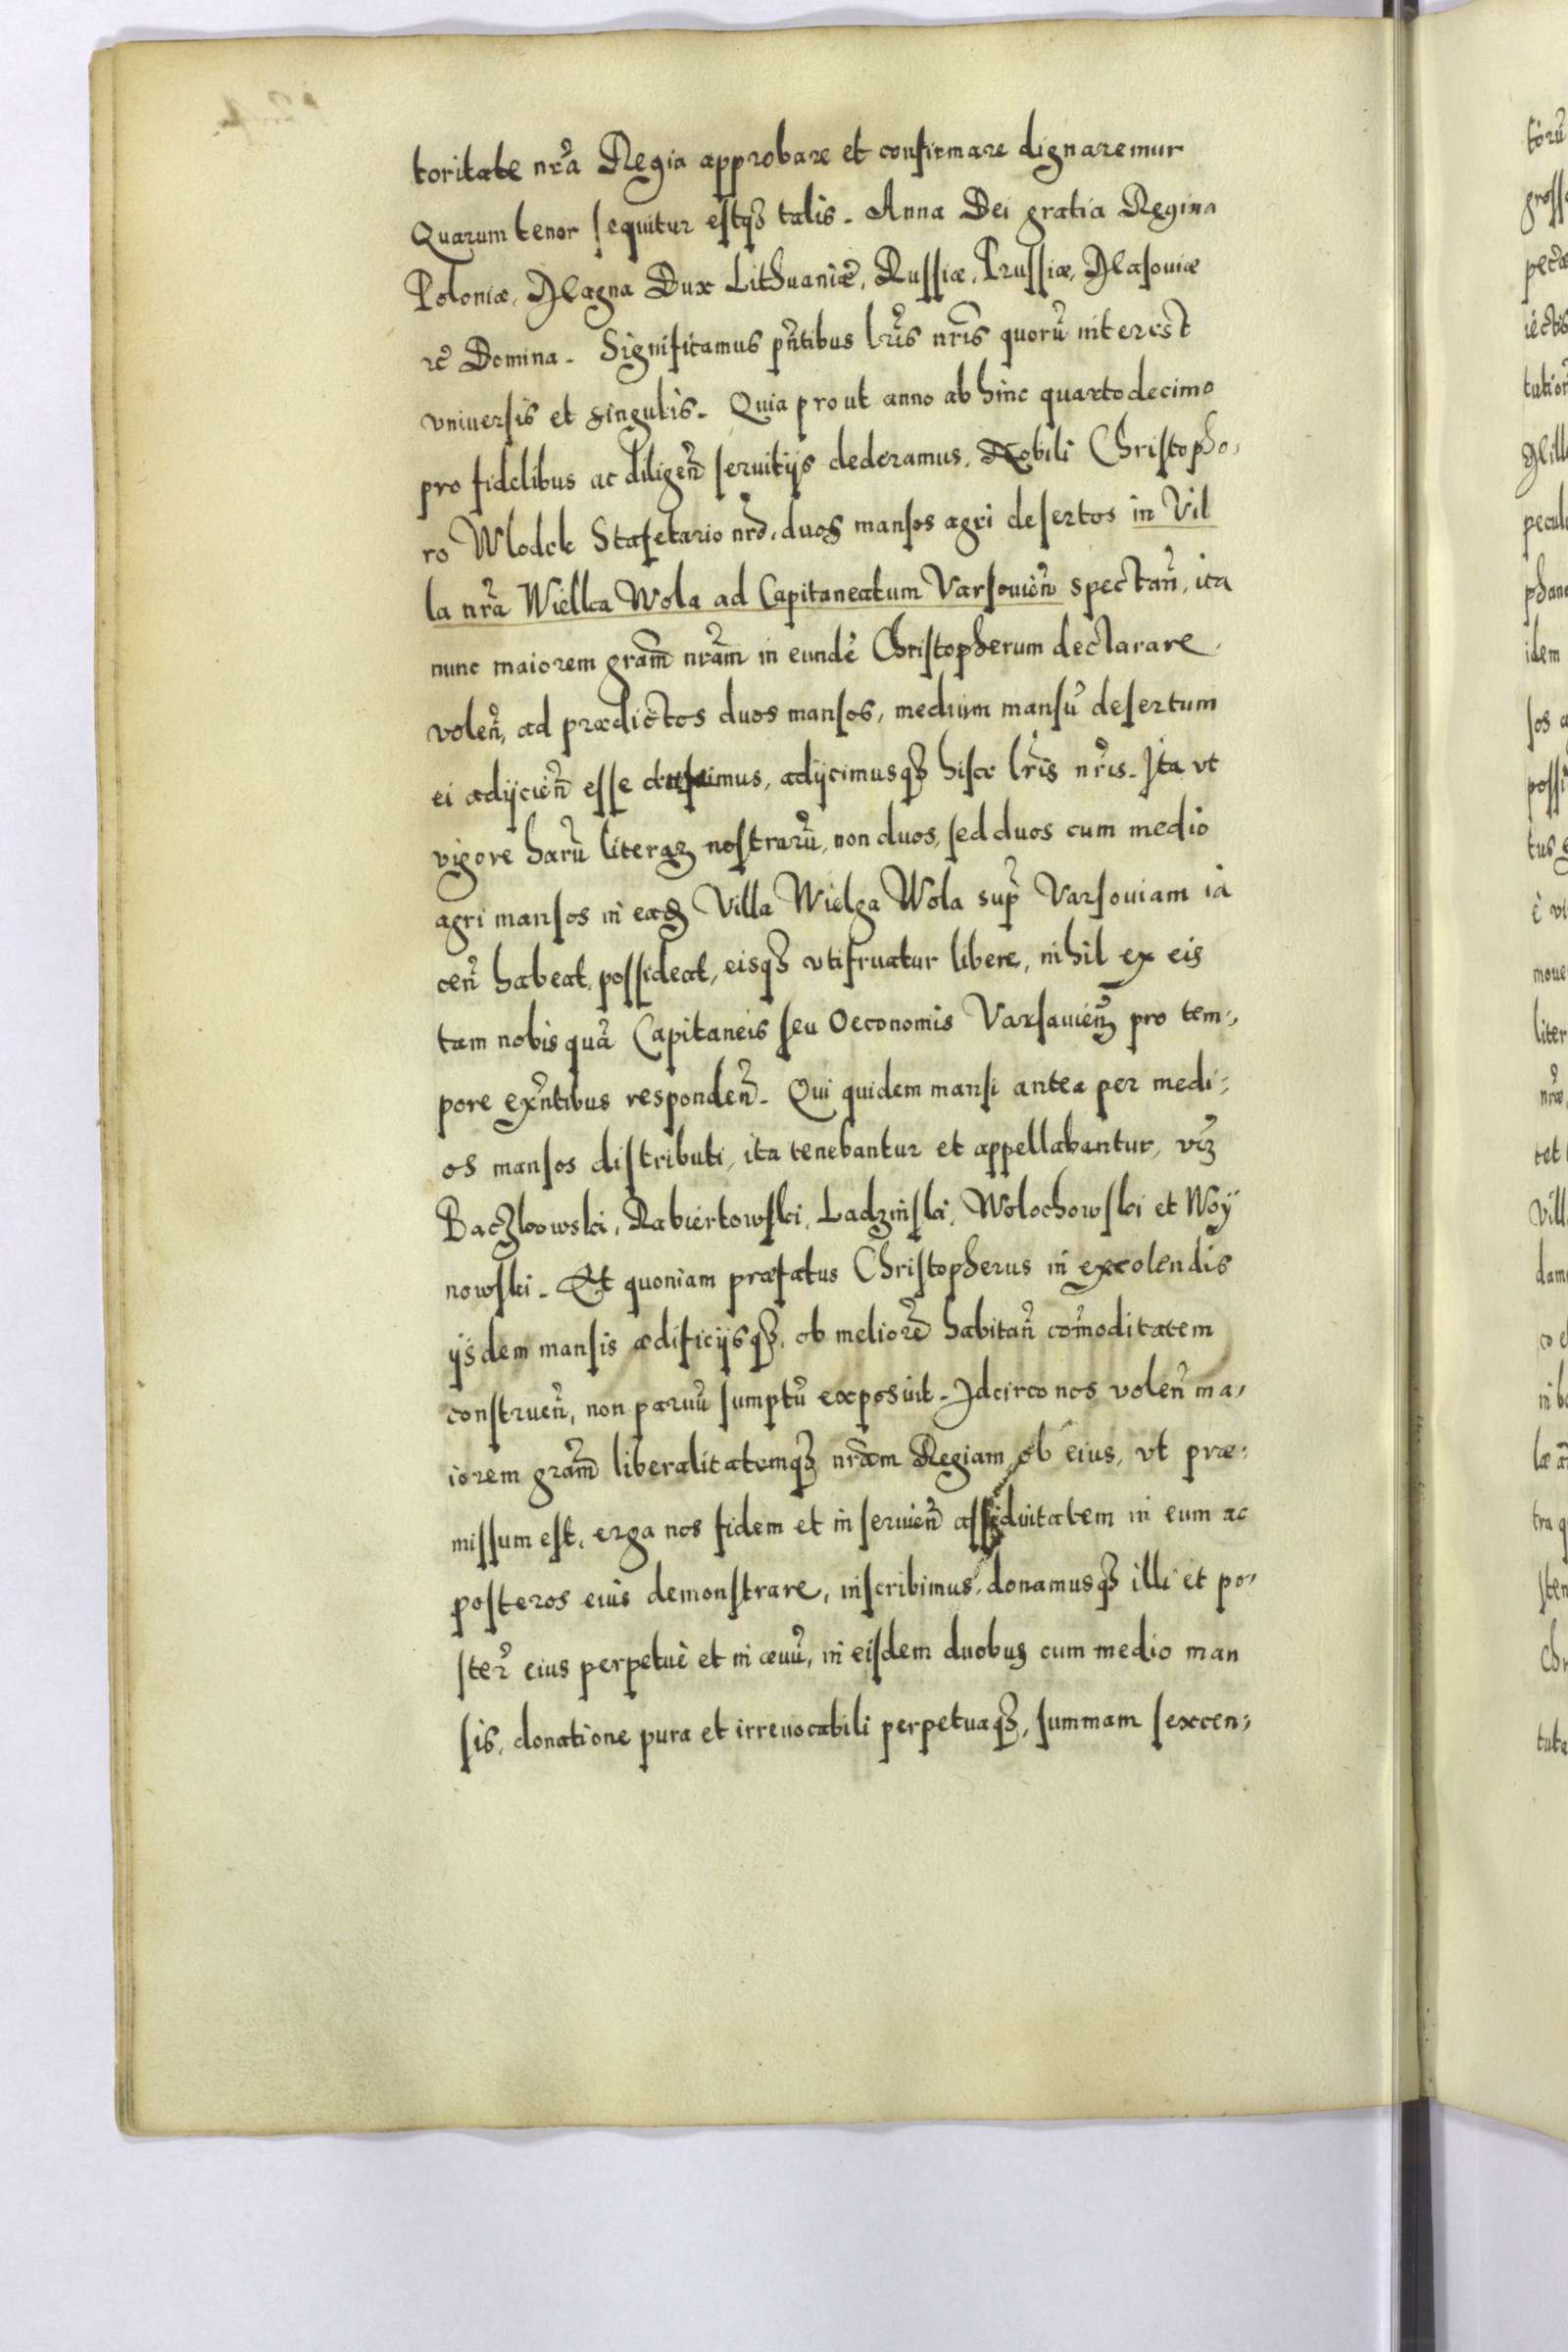 toritate nr̃a Regia approbare et confirmare dignaremur
Quarum tenor sequitur estqȝ talis. Anna Dei gratia Regina
Poloniæ, Magna Dux Lithuaniæ, Russiæ, Prussiæ, Masouiæ
rc̃ Domina. Significamus pñtibus lr̃is nr̃is quorũ interest
vniuersis et singulis. Quia prout anno ab hinc quarto decimo
pro fidelibus ac diligeñ seruitijs dederamus, Nobili Christopho,
ro Wlodek Stafetario nr̃o, duos mansos agri desertos in Vil
la nr̃a Wielka Wola ad Capitaneatum Varsouieñ spectañ, ita
nunc maiorem gr̃am nr̃am in eundẽ Christopherum declarare
voleñ, ad prædictos duos mansos, medium mansũ desertum
ei adijcieñ esse duximus, adijcimusqȝ hisce lr̃is nr̃is. Ita vt
vigore harũ literaꝝ nostrarũ, non duos, sed duos cum medio
agri mansos in eadȝ Villa Wielga Wola sup̃ Varsouiam ia
ceñ habeat, possideat, eisqȝ vtifruatur libere, nihil ex eis
tam nobis quã Capitaneis seu Oeconomis Varsauieñ pro tem,
pore exñtibus respondeñ. Qui quidem mansi antea per medi,
os mansos distributi, ita tenebantur et appellabantur, vȝ
Baczkowski, Rabiertowski, Ladzinski, Wolochowski et Woÿ
nowski. Et quoniam præfatus Christopherus in excolendis
ijsdem mansis ædificijsqȝ, ob meliorẽ habitañ com̃oditatem
construeñ, non paruũ sumptũ exposuit. Idcirco nos voleñ ma,
iorem gr̃am liberalitatemqȝ nr̃am Regiam, ob eius, vt præ,
missum est, erga nos fidem et in seruieñ assiduitatem in eum ac
posteros eius demonstrare, inscribimus, donamusqȝ illi et po,
ster̃ eius perpetuè et in æuũ, in eisdem duobus cum medio man
sis, donatione pura et irreuocabili perpetuaqȝ, summam sexcen,